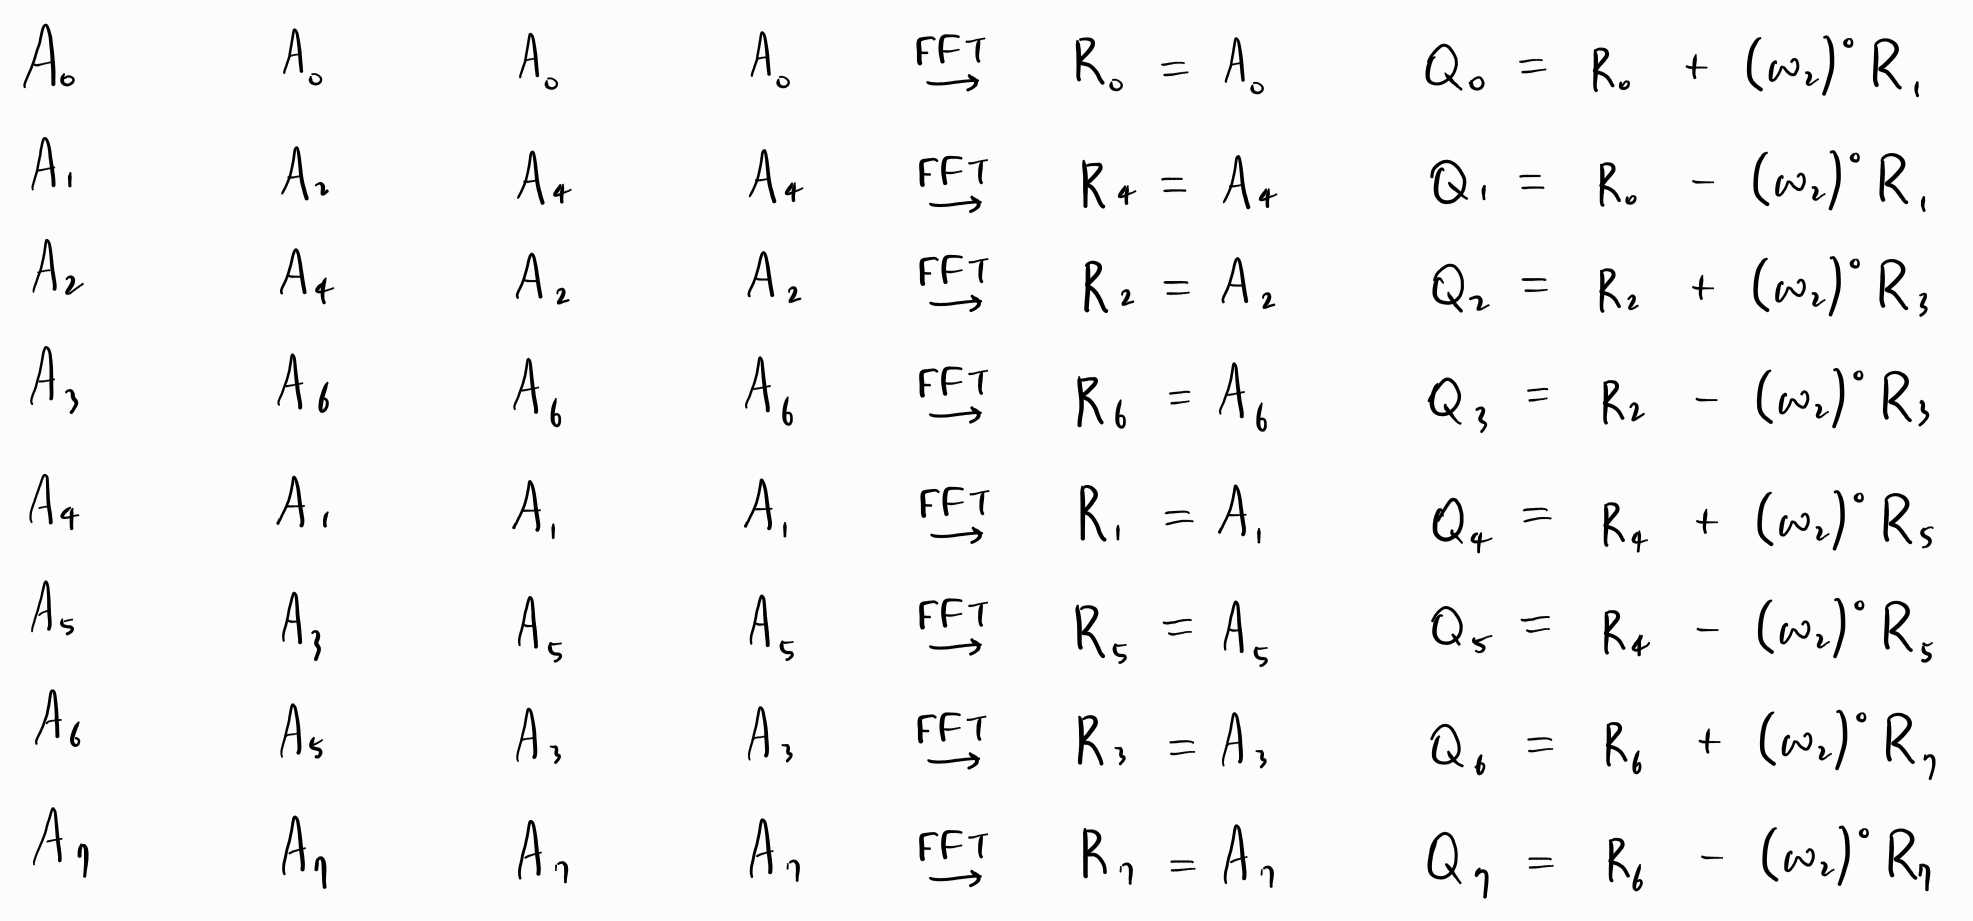 A₀ A₀ A₀ A₀ FFT → R₀ = A₀ Q₀ = R₀ + (ω₂)⁰ R₁
A₁ A₂ A₄ A₄ FFT → R₄ = A₄ Q₁ = R₀ - (ω₂)⁰ R₁
A₂ A₄ A₂ A₂ FFT → R₂ = A₂ Q₂ = R₂ + (ω₂)⁰ R₃
A₃ A₆ A₆ A₆ FFT → R₆ = A₆ Q₃ = R₂ - (ω₂)⁰ R₃
A₄ A₁ A₁ A₁ FFT → R₁ = A₁ Q₄ = R₄ + (ω₂)⁰ R₅
A₅ A₃ A₅ A₅ FFT → R₅ = A₅ Q₅ = R₄ - (ω₂)⁰ R₅
A₆ A₅ A₃ A₃ FFT → R₃ = A₃ Q₆ = R₆ + (ω₂)⁰ R₇
A₇ A₇ A₇ A₇ FFT → R₇ = A₇ Q₇ = R₆ - (ω₂)⁰ R₇